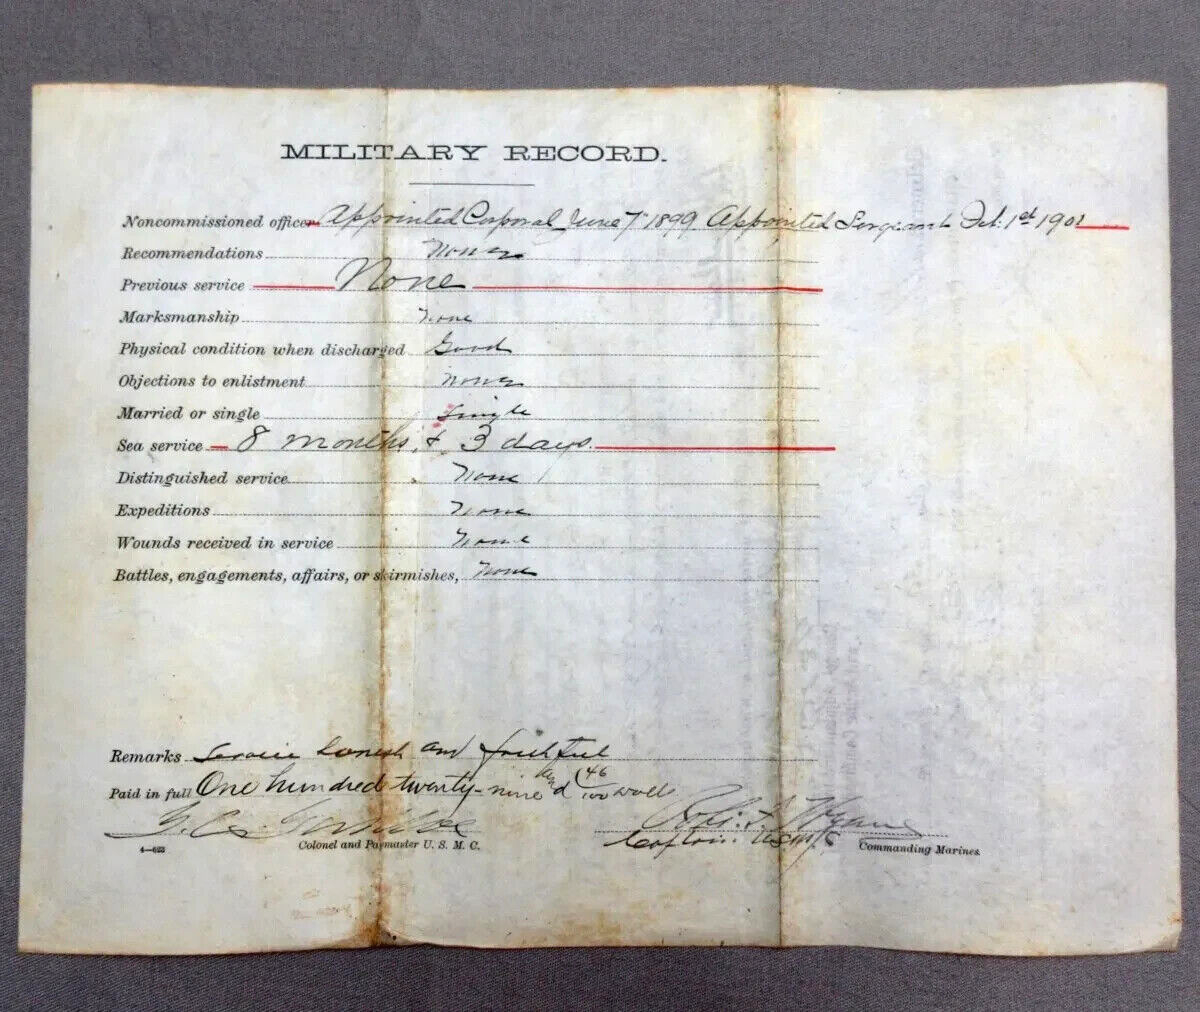 MILITARY RECORD.
Noncommissioned officer Appointed Corporal June 7" 1899 Appointed Sergeant Feb. 1st
Recommendations None
Previous service None
Marksmanship None
Physical condition when discharged Good
Objections to enlistment None
Married or single Single
Sea service 8 months, & 3 days.
Distinguished service None
Expeditions None
Wounds received in service None
Battles, engagements, affairs, or skirmishes, None
Remarks Service honest and faithful
Paid in full One hundred twenty-nine and 46/100 Dolls
Captain. U.S.M.C
4—623 Colonel and Paymaster U. S. M. C. Commanding Marines.